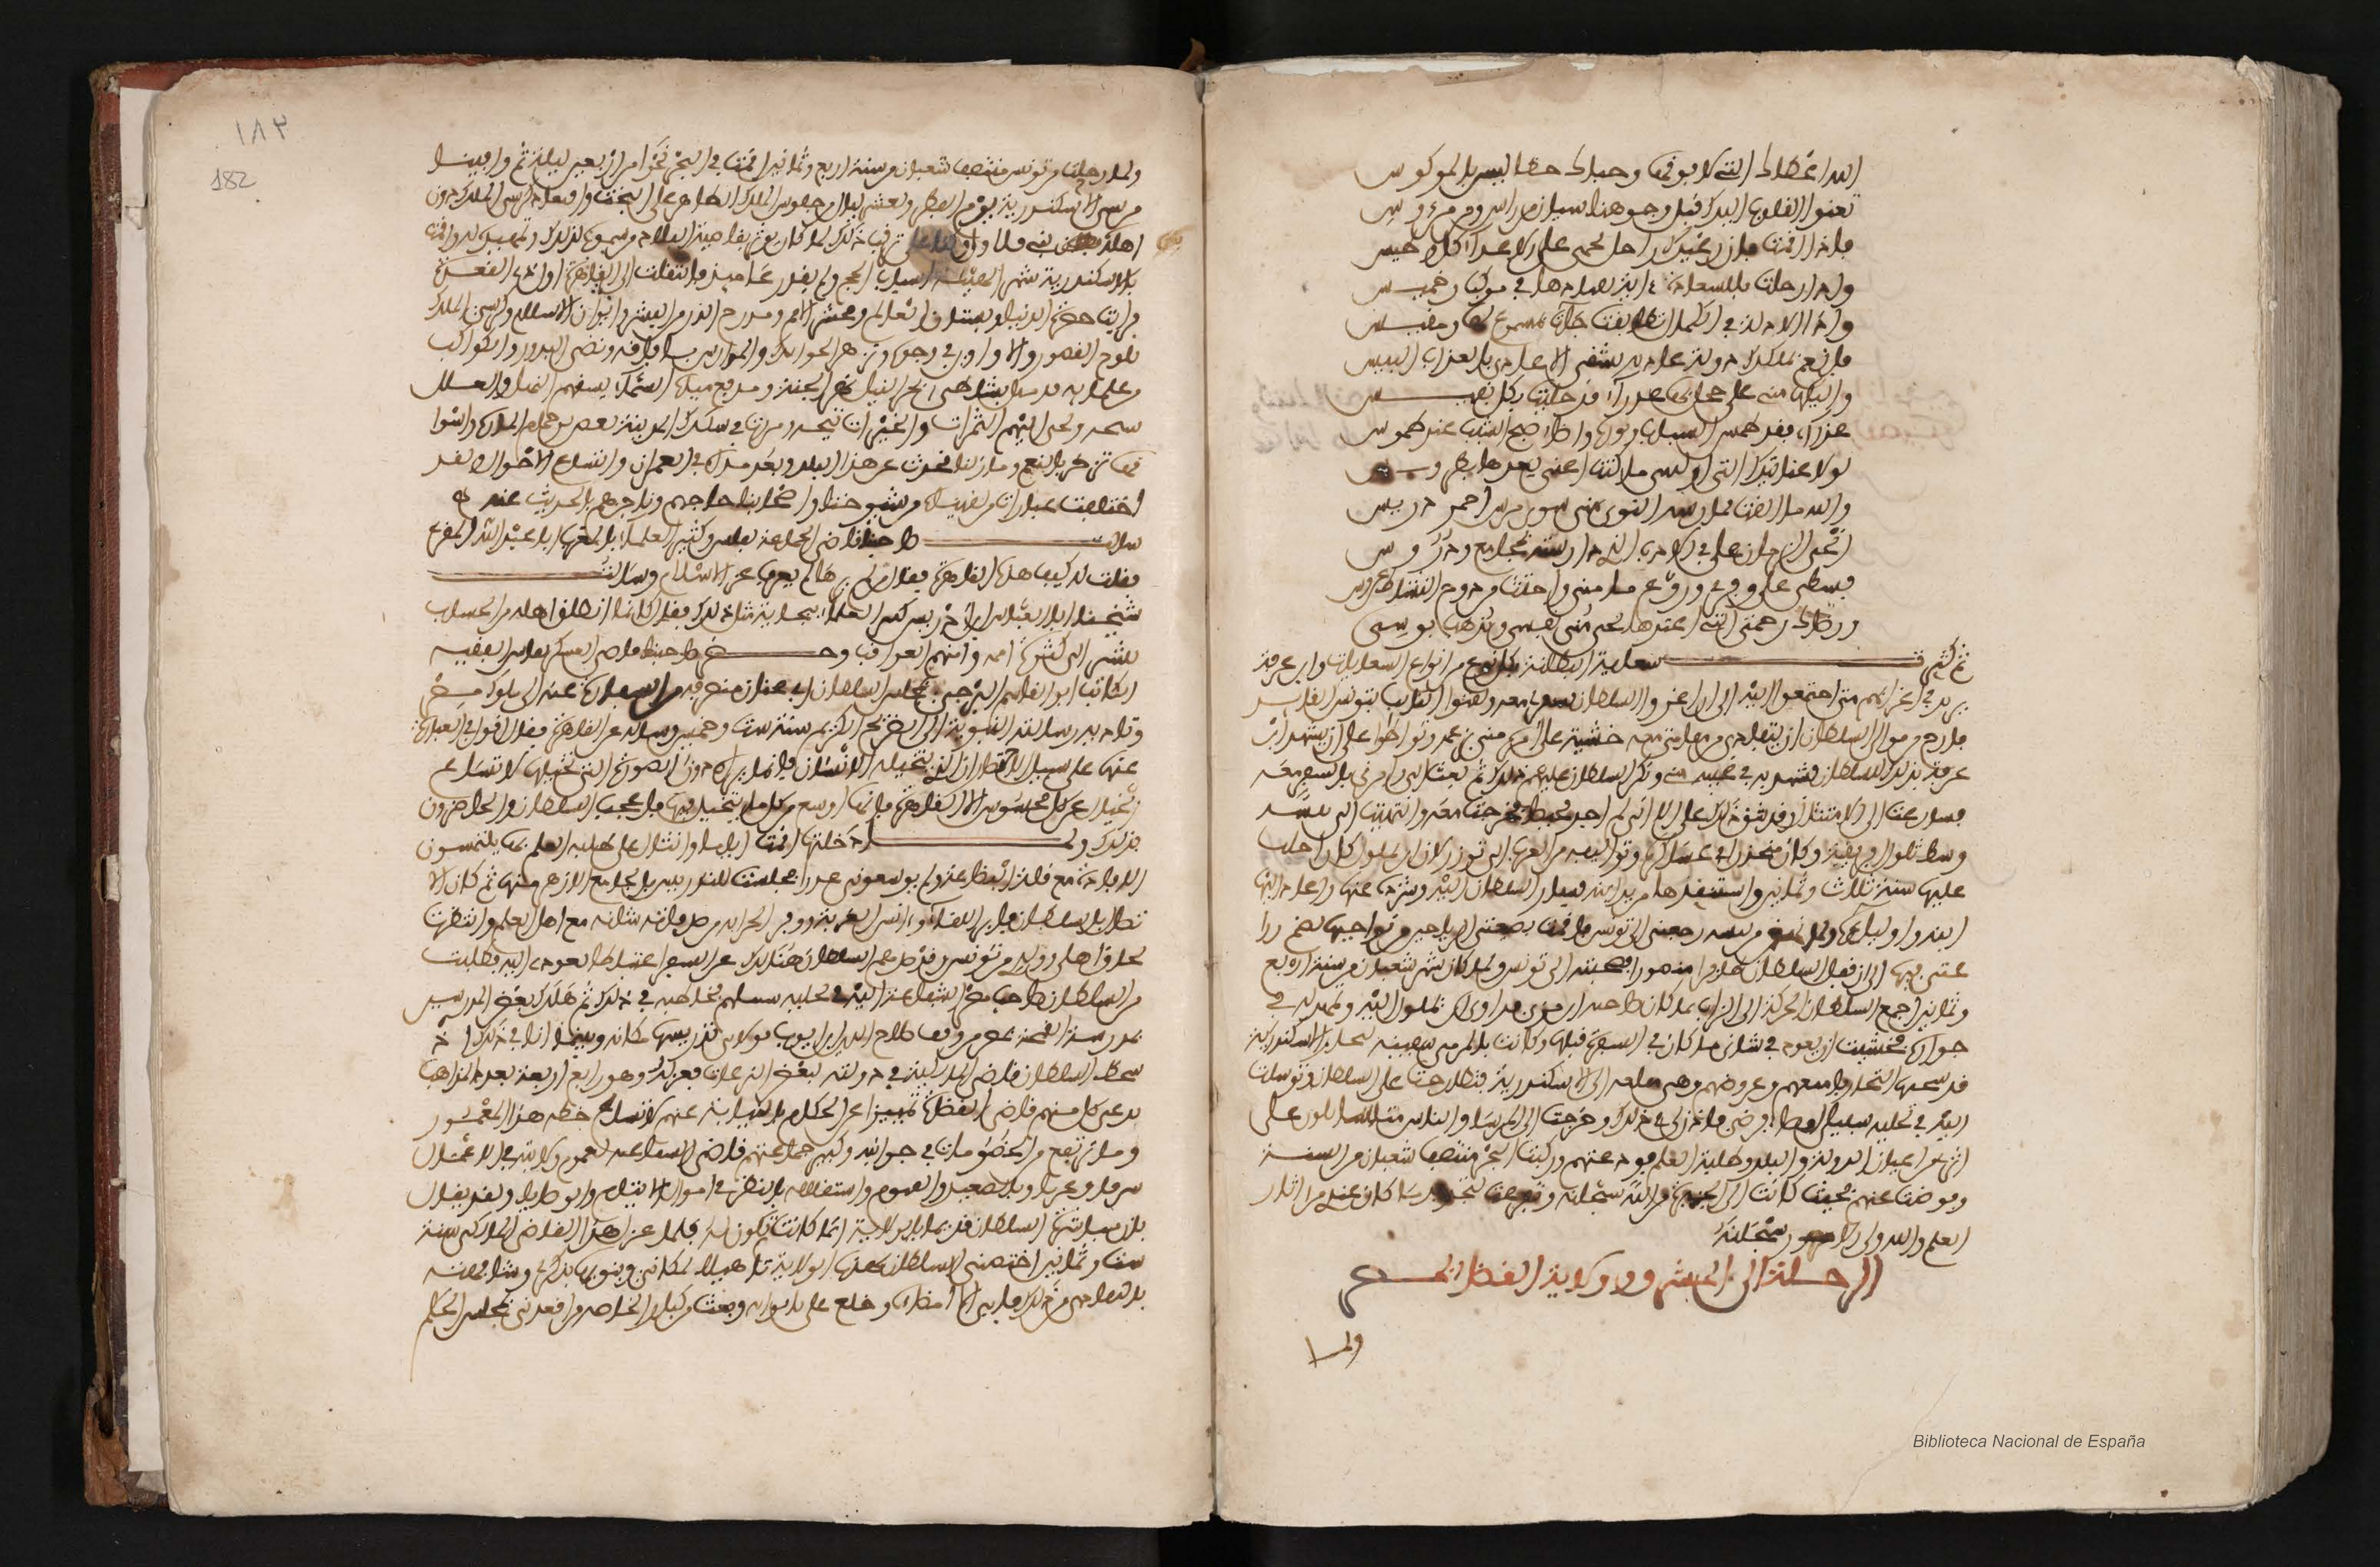 الله أعطاك التي لا فوقها وحباك حظا ليس بالموكوس
تعنو القلوب إليك قبل وجوهنا سيان من رأس ومرءوس
فإذا أقمت فإن رعبك راحل يحمى على الأعداء كل وطيس
وإذا رحلت فللسعادة آية تقتادها في موكب وخميس
وإذا الأدلة في الكمال تطابقت جاءت بمسموع لها ومقيس
فانعم بملكك دولة عادية تشقي الأعادي بالعذاب البيس
وإليكها مني على خجل بها عذراء قد حليت بكل نفيس
عذرا فقد طمس الشباب ونوره وأضاء صبح الشيب عند طموس
لولا عنايتك التي أوليتني ما كنت أعنى بعدها بطروس
والله ما أبقت ممارسة النوى مني سوى مرس أحم دريس
أنحى الزمان علي في الأدب الذي دارسته بمجامع ودروس
فسطا على وفري وروع مأمني واجتث من دوح النشاط غروسي
ورضاك رحمتي التي أعتدها تحيي منى نفسي وتذهب بوسي
ثم كثرت سعاية البطانة بكل نوع من أنواع السعايات وابن عرفة
يزيد في إغرائهم متى اجتمعوا إليه إلى أن أغروا السلطان بسفري معه ولقنوا النائب بتونس القائد
فارح من موالي السلطان أن يتفادى من مقامي معه خشية على أمره مني بزعمه وتواطئوا على أن يشهد ابن
عرفة بذلك للسلطان فشهد به في غيبة مني ونكر السلطان عليهم ذلك ثم بعث إلي وأمرني بالسفر معه
فسارعت إلى الامتثال وقد شق ذلك علي إلا أني لم أجد محيصا فخرجت معه وانتهيت إلى تبسة
وسط تلول إفريقية وكان منحدرا في عساكره وتواليفه من العرب إلى توزر لأن ابن يملول كان أجلب
عليها سنة ثلاث وثمانين واستنقذها من يد ابنه فسار السلطان إليه وشرده عنها وأعاد إليها
ابنه وأولياءه ولما نهض من تبسة رجعني إلى تونس فأقمت بضيعتي الرياحين من نواحيها لضم زرا
عتي بها إلى أن قفل السلطان ظافرا منصورا فصحبته إلى تونس ولما كان شهر شعبان من سنة أربع
وثمانين أجمع السلطان الحركة إلى الزاب بما كان صاحبه ابن مزني قد آوى ابن يملول إليه ومهد له في
جواره فخشيت أن يعود في شأني ما كان في السفرة قبلها وكانت بالمرسى سفينة لتجار الإسكندرية
قد شحنها التجار بأمتعتهم وعروضهم وهي مقلعة إلى الإسكندرية فتطارحت على السلطان وتوسلت
إليه في تخلية سبيلي لقضاء فرضي فأذن لي في ذلك وخرجت إلى المرسى والناس متسايلون على
أثري من أعيان الدولة والبلد وطلبة العلم فودعتهم وركبت البحر منتصف شعبان من السنة
وقوضت عنهم بحيث كانت الخيرة من الله سبحانه وتفرغت لتجديد ما كان عندي من آثار
العلم والله ولي الأمور سبحانه
الرحلة إلى المشرق وولاية القضاء بمصر
ولما
١٨٢
182
ولما رحلت من تونس منتصف شعبان من سنة أربع وثمانين أقمنا في البحر نحوا من أربعين ليلة ثم وافينا
مرسى الإسكندرية يوم الفطر ولعشر ليال من جلوس الملك الظاهر على التخت واقتعاد كرسي الملك دون
أهله بني قلاوون وكنا على ترقب ذلك لما كان يؤثر بقاصية البلاد من سموه لذلك وتمهيده له وأقمت
بالإسكندرية شهرا لتهيئة أسباب الحج ولم يقدر عامئذ فانتقلت إلى القاهرة أول ذي القعدة
فرأيت حضرة الدنيا وبستان العالم ومحشر الأمم ومدرج الذر من البشر وإيوان الإسلام وكرسي الملك
تلوح القصور والأواوين في جوه وتزهر الخوانك والمدارس بآفاقه وتضيء البدور والكواكب
من علمائه قد مثل بشاطئ بحر النيل نهر الجنة ومدفع مياه السماء يسقيهم النهل والعلل
سيحه ويجبي إليهم الثمرات والخيرات ثجه ومررت في سكك المدينة تغص بزحام المارة وأسوا
قها تزخر بالنعم وما زلنا نحدث عن هذا البلد وبعد مداه في العمران واتساع الأحوال ولقد
اختلفت عبارات من لقيناه من شيوخنا وأصحابنا حاجهم وتاجرهم بالحديث عنه
سألت صاحبنا قاضي الجماعة بفاس وكبير العلماء بالمغرب أبا عبد الله المقري
فقلت له كيف هذه القاهرة فقال من لم يرها لم يعرف عز الإسلام وسألت
شيخنا أبا العباس ابن إدريس كبير العلماء ببجاية مثل ذلك فقال كأنما انطلق أهله من الحساب
يشير إلى كثرة أممه وأمنهم العواقب وحضر صاحبنا قاضي العسكر بفاس الفقيه
الكاتب أبو القاسم البرجي بمجلس السلطان أبي عنان منصرفه من السفارة عنه إلى ملوك مصر
وتأدية رسالته النبوية إلى الضريح الكريم سنة ست وخمسين وسأله عن القاهرة فقال أقول في العبارة
عنها على سبيل الاختصار إن الذي يتخيله الإنسان فإنما يراه دون الصورة التي تخيلها لاتساع
الخيال عن كل محسوس إلا القاهرة فإنها أوسع من كل ما يتخيل فيها فأعجب السلطان والحاضرون
بذلك ولما دخلتها أقمت أياما وانثال علي طلبة العلم بها يلتمسون
الإفادة مع قلة البضاعة ولم يوسعوني عذرا فجلست للتدريس بالجامع الأزهر منها ثم كان الا
تصال بالسلطان فأبر اللقاء وآنس الغربة ووفر الجراية من صدقاته شأنه مع أهل العلم وانتظرت
لحاق أهلي وولدي من تونس وقد صدهم السلطان هنالك عن السفر اغتباطا بعودي إليه فطلبت
من السلطان صاحب مصر الشفاعة إليه في تخلية سبيلهم فخاطبه في ذلك ثم هلك بعض المدرسين
بمدرسة القمحية بمصر من وقف صلاح الدين بن أيوب فولاني تدريسها مكانه وبينا أنا في ذلك إذ
سخط السلطان قاضي المالكية في دولته لبعض النزعات فعزله وهو رابع أربعة بعدد المذاهب
يدعى كل منهم قاضي القضاة تمييزا عن الحكام بالنيابة عنهم لاتساع خطة هذا المعمور
وما يرتفع من الخصومات في جوانبه وكبير جماعتهم قاضي الشافعية لعموم ولايته في الأعمال
شرقا وغربا وبالصعيد والفيوم واستقلاله بالنظر في أموال الأيتام والوصايا ولقد يقال
بأن مباشرة السلطان قديما بالولاية إنما كانت تكون له فلما عزل هذا القاضي المالكي سنة
ست وثمانين اختصني السلطان بهذه الولاية تأهيلا لمكاني وتنويها بذكري وشافهته
بالتفادي من ذلك فأبى إلا إمضاءه وخلع علي بإيوانه وبعث من كبار الخاصة من أقعدني بمجلس الحكم
Biblioteca Nacional de España